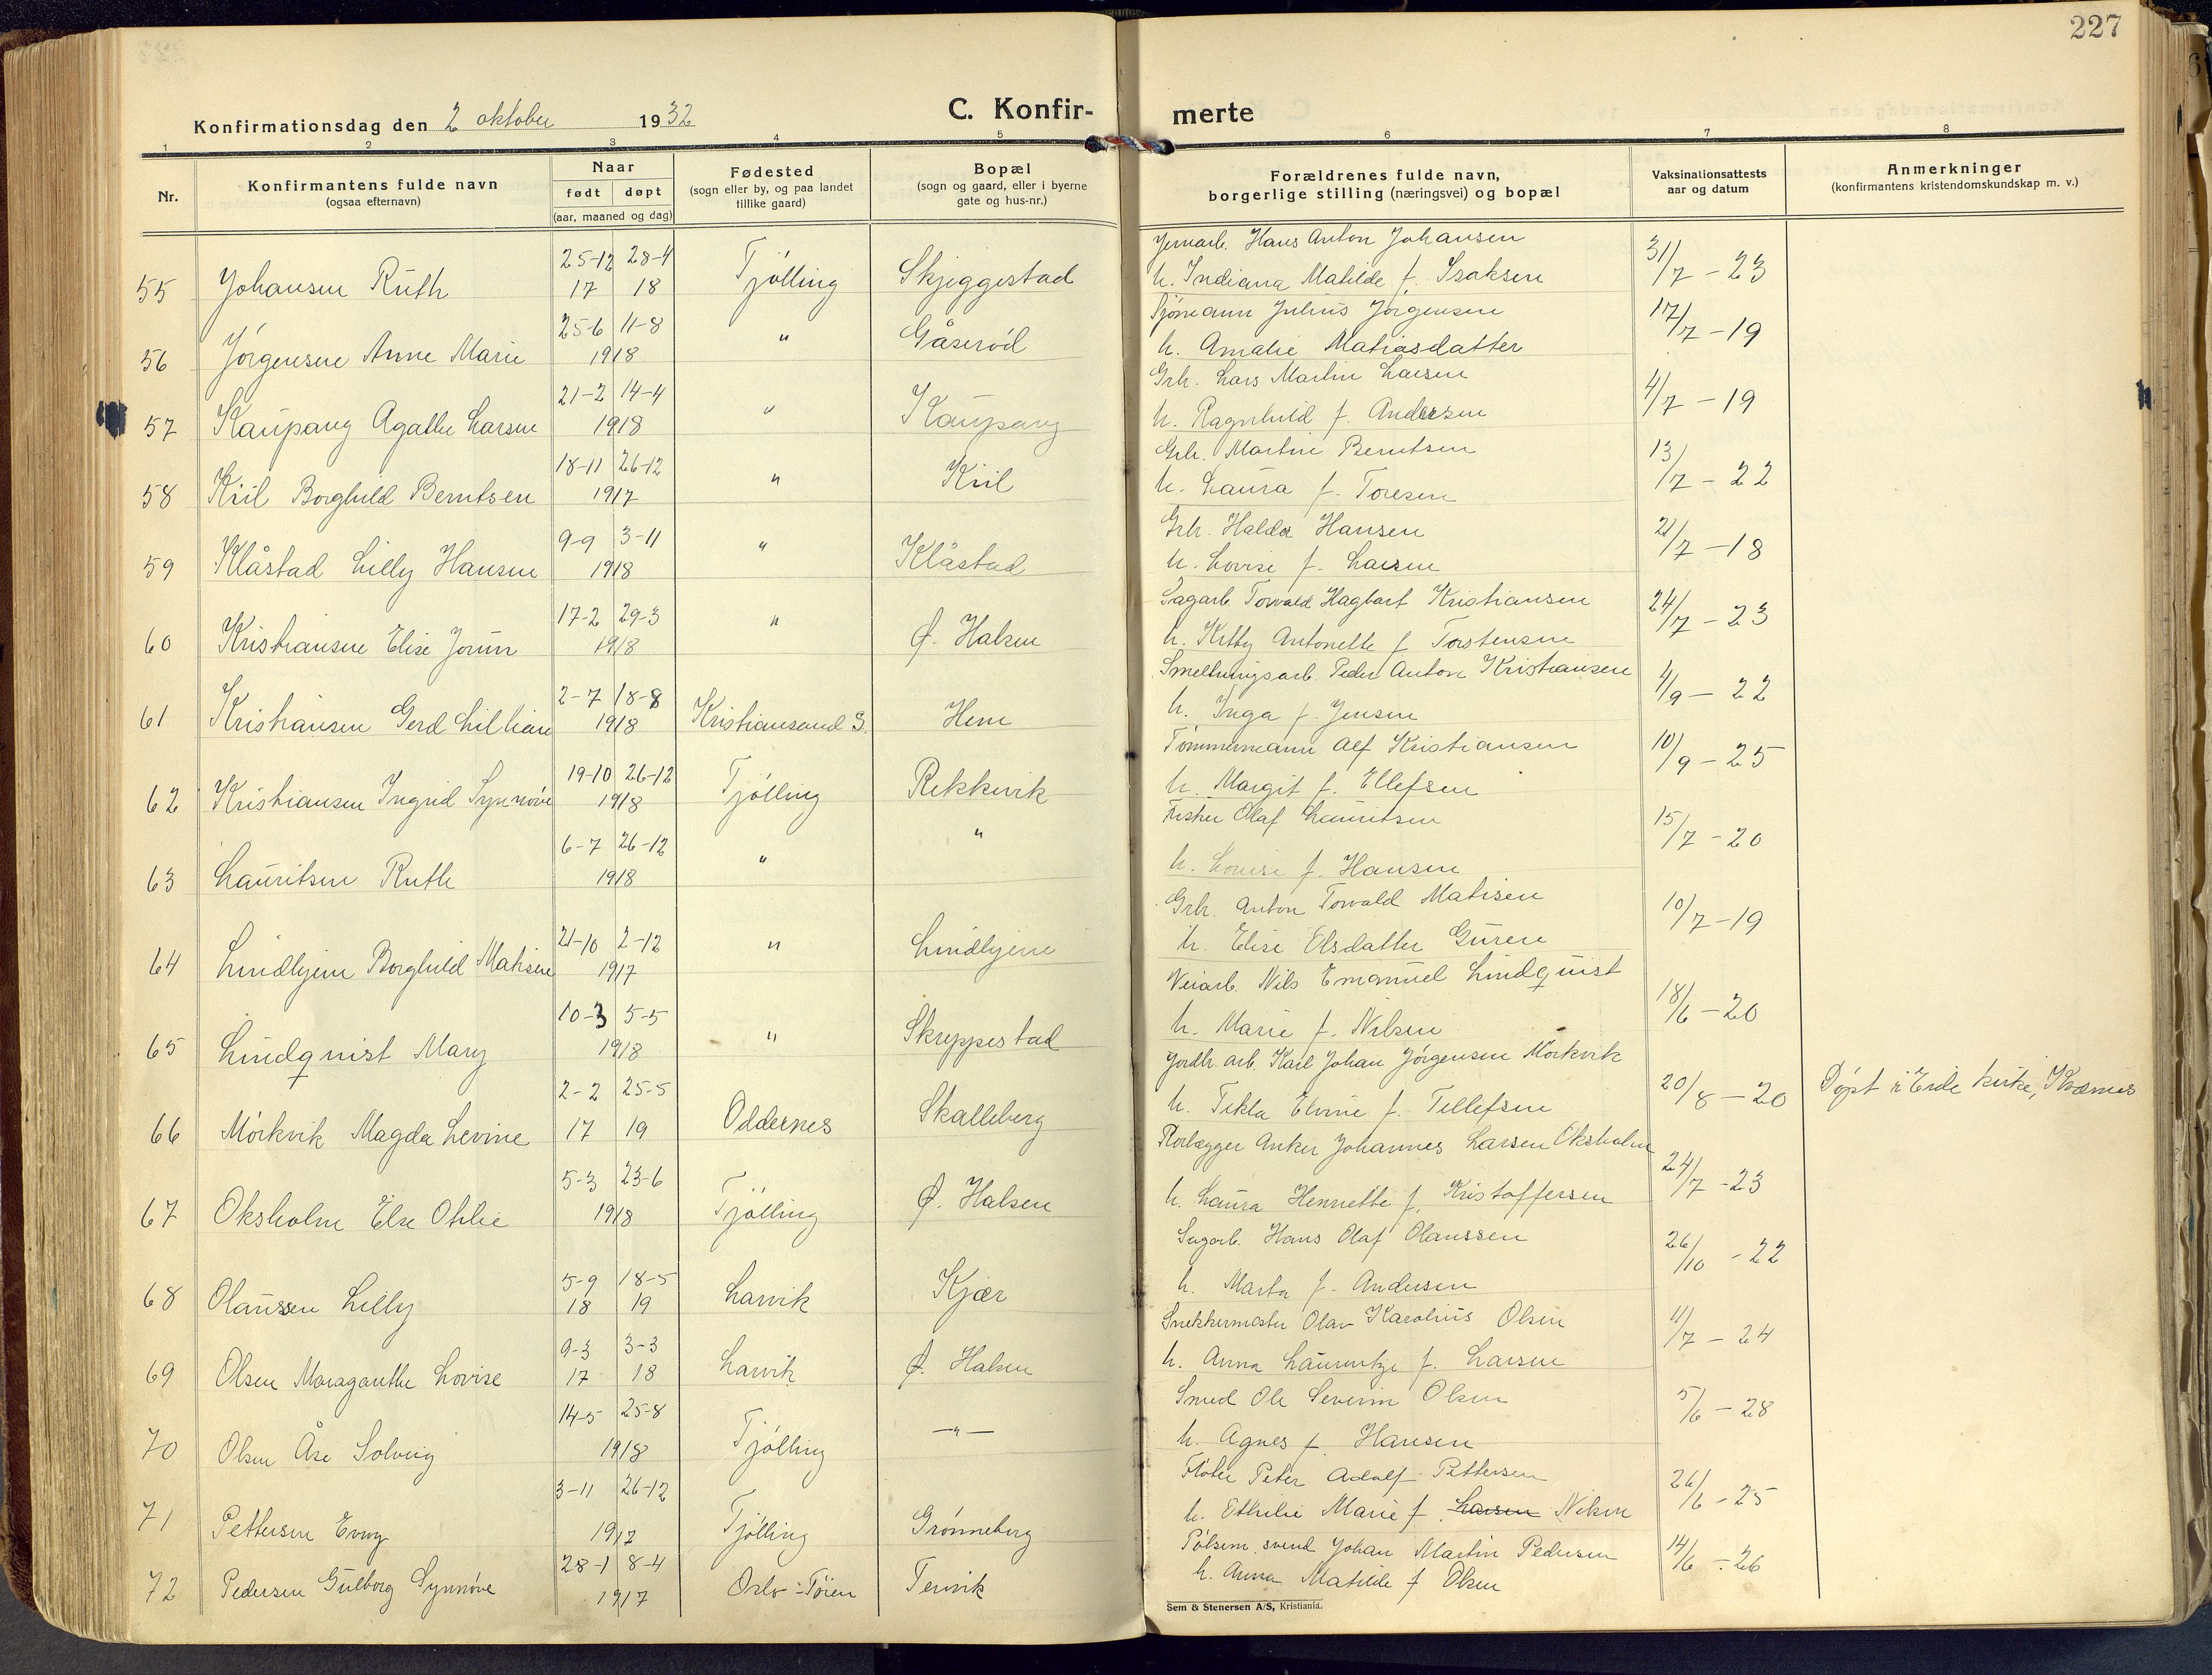 227
Konfirmationsdag den 2 oktober 1932
C. Konfir-
merte
1 2 3 4 5 6 7 8
Nr.
Konfirmantens fulde navn
(ogsaa efternavn)
Naar
født døpt
(aar, maaned og dag)
Fødested
(sogn eller by, og paa landet
tillike gaard)
Bopæl
(sogn og gaard, eller i byerne
gate og hus-nr.)
Forældrenes fulde navn,
borgerlige stilling (næringsvei) og bopæl
Vaksinationsattests
aar og datum
Anmerkninger
(konfirmantens kristendomskundskap m. v.)
25-12 28-4
55 Johansen Ruth 17 18 Tjølling Skjeggestad
Jernarb. Hans Anton Johansen
h. Indiana Matilde f. Isaksen 31/7 - 23
25-6 11-8
56 Jörgensen Anne Marie 1918 " Gåserød
Sjömann Julius Jörgensen
h. Amalie Matiasdatter 17/7 - 19
21-2 14-4
57 Kaupang Agathe Larsen 1918 " Kaupang
Grb. Lars Martin Larsen
h. Ragnhild f. Andersen 4/7 - 19
18-11 26-12
58 Kiil Borghild Berntsen 1917 " Kiil
Grb. Martin Berntsen
h. Laura f. Toresen 13/7 - 22
9-9 3-11
59 Klåstad Lilly Hansen 1918 " Klåstad
Grb. Haldor Hansen
h. Lovise f. Larsen 21/7 - 18
17-2 29-3
60 Kristiansen Elise Jorun 1918 " Ø. Halsen
Sagarb. Torvald Hagbart Kristiansen
h. Kitty Antonette f Torstensen 24/7 - 23
2-7 18-8
61 Kristiansen Gerd Lillian 1918 Kristiansand S. Hem
Smeltningsarb. Peder Anton Kristiansen
h. Inga f. Jensen 4/9 - 22
19-10 26-12
62 Kristiansen Ingrid Synnöve 1918 Tjölling Rekkevik
Tømmermann Alf Kristiansen
h. Margit f. Ellefsen 10/9 - 25
6-7 26-12
63 Lauritsen Ruth 1918 " "
Fisker Olaf Lauritsen
h. Lovise f. Hansen 15/7 - 20
21-10 2-12
64 Lindhjem Borghild Matisen 1917 " Lindhjem
Grb. Anton Torvald Matisen
h. Elise Olsdatter Guren 10/7 - 19
10-3 5-5
65 Lindquist Mary 1918 " Skreppestad
Veiarb. Nils Emanuel Lindquist
h. Marie f. Nilsen 18/6 - 20
2-2 25-5
66 Mörkvik Magda Levine 17 19 Oddernes Skalleberg
Jordbr. arb. Karl Johan Jörgensen Mörkvik
h. Tekla Elvine f. Tellefsen 20/8 - 20 Döpt i Eide kirke,
5-3 23-6
67 Oksholm Else Otilie 1918 Tjölling Ø. Halsen
Rorlægger Anker Johannes Larsen Oksholm
h. Laura Henriette f. Kristoffersen 24/7 - 23
5-9 18-5
68 Olaussen Lilly 18 19 Larvik Kjær
Sagarb. Hans Olaf Olaussen
h. Marta f. Andersen 26/10 - 22
9-3 3-3
69 Olsen Maraganthe Lovise 17 18 Larvik Ø. Halsen
Snekkermester Olav Karolius Olsen
h. Anna Laurentze f. Larsen 11/7 - 24
14-5 25-8
70 Olsen Åse Solveig 1918 Tjölling — " —
Smed Ole Severin Olsen
h. Agnes f. Hansen 5/6 - 28
3-11 26-12
71 Pettersen Evny 1917 Tjölling Grønneberg
Fløter Peter Adolf Pettersen
h. Othilie Marie f. Larsen Nilsen 26/6 - 25
28-1 8-4
72 Pedersen Gulborg Synnöve 1917 Oslo - Töien Tenvik
Pölsem. svend Johan Martin Pedersen
h. Anna Matilde f Olsen 14/6 - 26
Sem & Stenersen A/S, Kristiania.